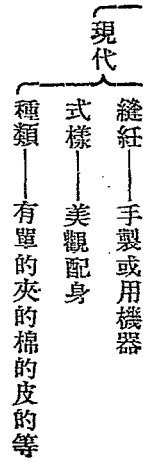 現代
縫紝——手製或用機器
式樣——美觀配身
種類——有單的夾的棉的皮的等